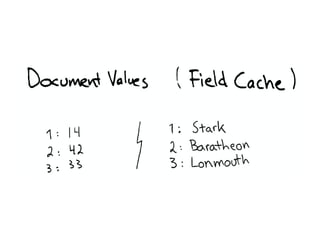 Document Values (Field Cache)
1: 14
2: 42
3: 33
1: Stark
2: Baratheon
3: Lonmouth